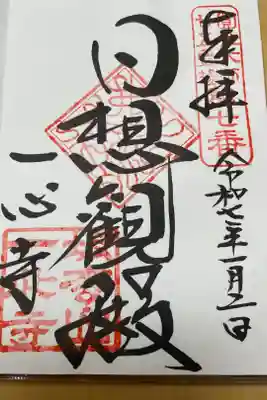 奉拝
令和七年一月二日
日想観殿
一心寺